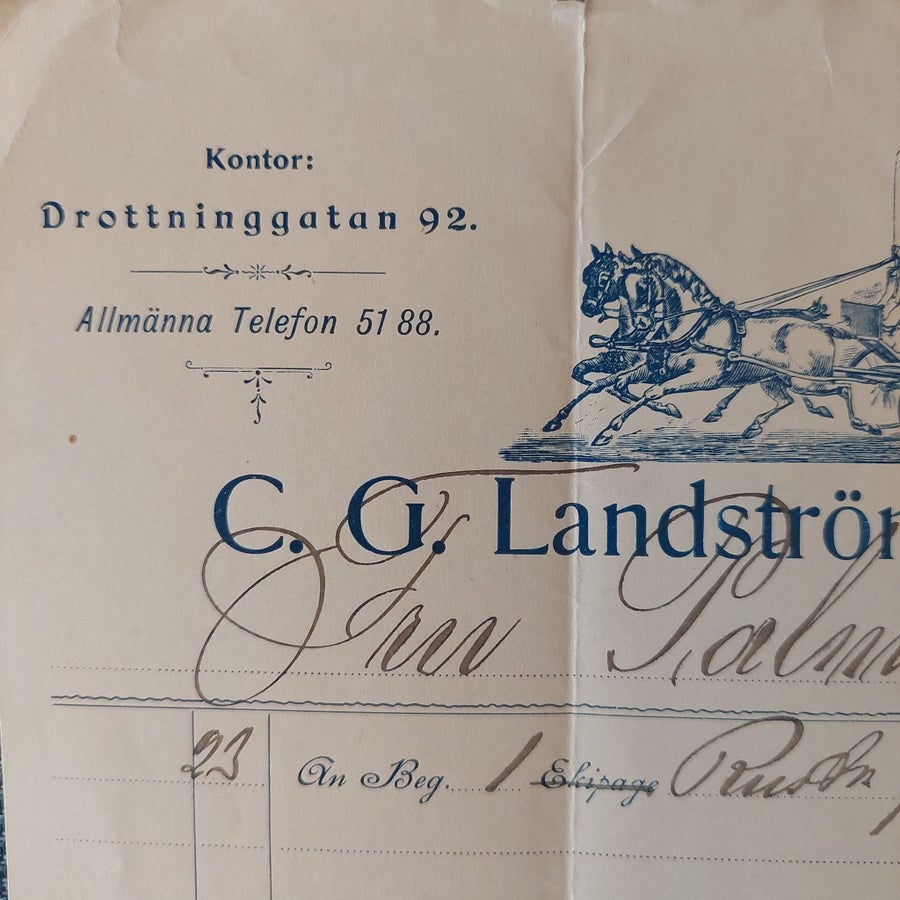 Kontor:
Drottninggatan 92.
Allmänna Telefon 51 88.
C. G. Landström
Fru Palm
23 An Beg. 1 Ekipage